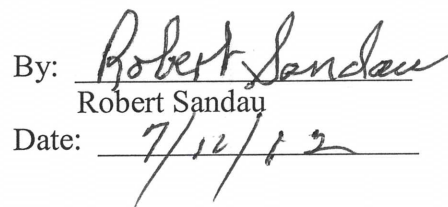 By: Robert Sandau
Robert Sandau
Date: 7/12/12